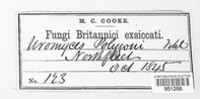 M. C. COOKE.
Fungi Britannici exsiccati.
Uromyces Polygoni Fckl
Northfleet
Oct 1865
No. 123
951268